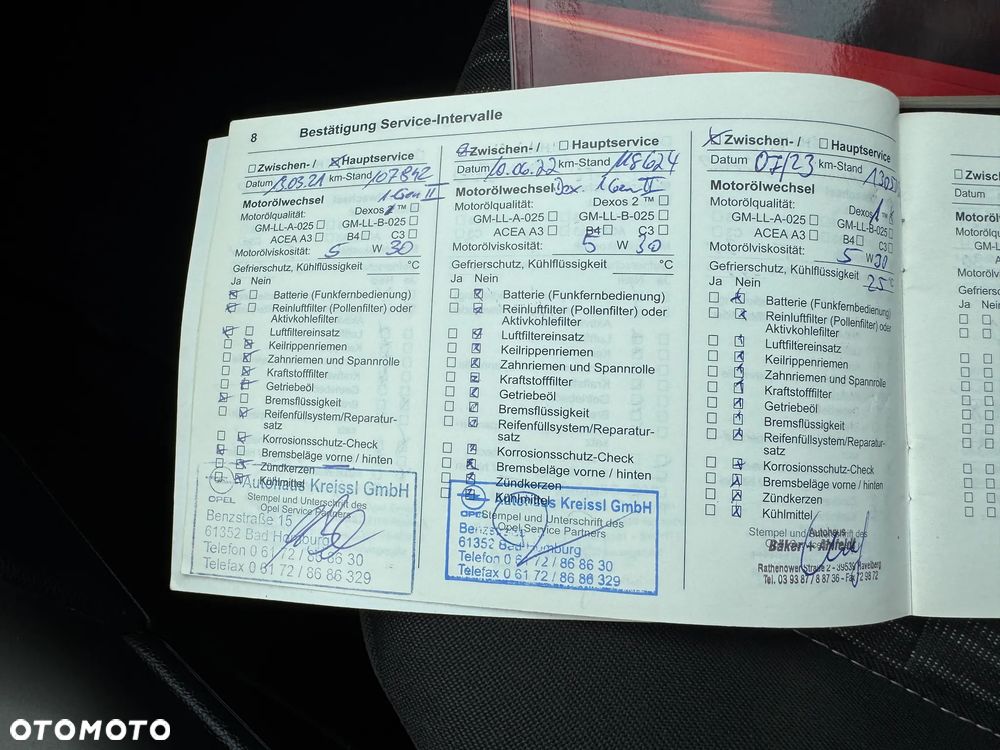 8 Bestätigung Service-Intervalle
Zwischen- / Hauptservice
Datum 13.03.21 km-Stand 107842
1 Gen II
Motorölwechsel
Motorölqualität: Dexos 2 ™
GM-LL-A-025 GM-LL-B-025
ACEA A3 B4 C3
Motorölviskosität: 5 W 30
Gefrierschutz, Kühlflüssigkeit °C
Ja Nein
Batterie (Funkfernbedienung)
Reinluftfilter (Pollenfilter) oder
Aktivkohlefilter
Luftfiltereinsatz
Keilrippenriemen
Zahnriemen und Spannrolle
Kraftstofffilter
Getriebeöl
Bremsflüssigkeit
Reifenfüllsystem/Reparatur-
satz
Korrosionsschutz-Check
Bremsbeläge vorne / hinten
Zündkerzen
Kühlmittel
Autohaus Kreissl GmbH
OPEL
Stempel und Unterschrift des
Opel Service Partners
Benzstraße 15
61352 Bad Homburg
Telefon 0 61 72 / 86 86 30
Telefax 0 61 72 / 86 86 329
Zwischen- / Hauptservice
Datum 10.06.22 km-Stand 118624
Motorölwechsel Dex. 1 Gen II
Dexos 2 ™
Motorölqualität:
GM-LL-A-025 GM-LL-B-025
ACEA A3 B4 C3
Motorölviskosität: 5 W 30
Gefrierschutz, Kühlflüssigkeit °C
Ja Nein
Batterie (Funkfernbedienung)
Reinluftfilter (Pollenfilter) oder
Aktivkohlefilter
Luftfiltereinsatz
Keilrippenriemen
Zahnriemen und Spannrolle
Kraftstofffilter
Getriebeöl
Bremsflüssigkeit
Reifenfüllsystem/Reparatur-
satz
Korrosionsschutz-Check
Bremsbeläge vorne / hinten
Zündkerzen
Kühlmittel
Autohaus Kreissl GmbH
OPEL
Stempel und Unterschrift des
Opel Service Partners
61352 Bad Homburg
Telefon 0 61 72 / 86 86 30
Telefax 0 61 72 / 86 86 329
Zwischen- / Hauptservice
Datum 07/23 km-Stand
Motorölwechsel
Motorölqualität: Dexos 1 ™
GM-LL-A-025 GM-LL-B-025
ACEA A3 B4 C3
Motorölviskosität: 5 W 30
Gefrierschutz, Kühlflüssigkeit 25 °C
Ja Nein
Batterie (Funkfernbedienung)
Reinluftfilter (Pollenfilter) oder
Aktivkohlefilter
Luftfiltereinsatz
Keilrippenriemen
Zahnriemen und Spannrolle
Kraftstofffilter
Getriebeöl
Bremsflüssigkeit
Reifenfüllsystem/Reparatur-
satz
Korrosionsschutz-Check
Bremsbeläge vorne / hinten
Zündkerzen
Kühlmittel
Stempel und Unterschrift des
Autohaus
Rathenower Straße 2 - 39539 Havelberg
Tel. 03 93 87 / 8 87 36 - Fax 7 98 72
Zwisch
Datum
Motoröl
Motorölqu
GM-L
Motorölvis
Gefriersch
Ja Nein
OTOMOTO